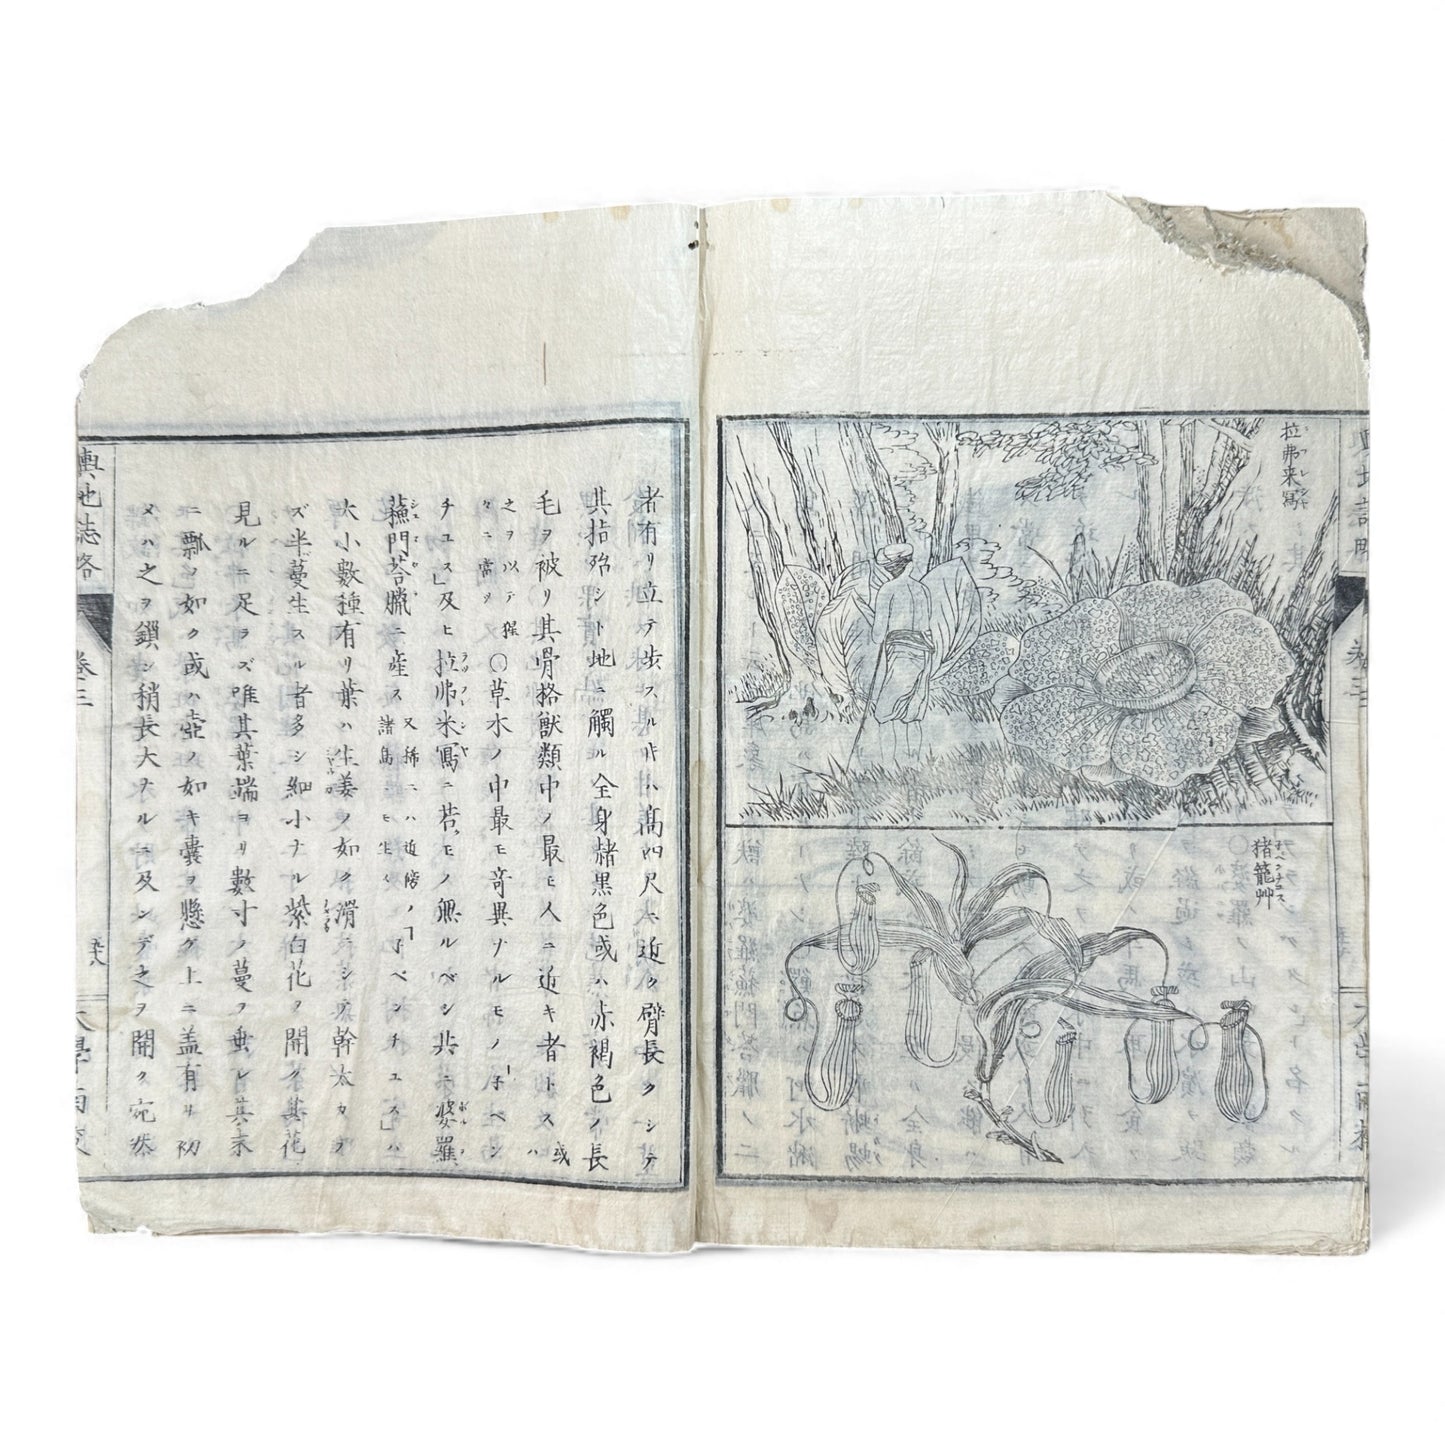 拉弗来寫
ラフレシヤ
猪籠艸
子ペンチュス
輿地誌略
巻三
者有リ立テ歩スル時ハ高四尺ニ近ク臂長クシテ
其指殆ント地ニ觸ル全身赭黒色或ハ赤褐色ノ長
毛ヲ被リ其骨格獸類中ノ最モ人ニ近キ者トス或ハ
之ヲ以テ猩々ニ當ツ〇草木ノ中最モ奇異ナルモノ「子ペン
チュス」及ヒ拉弗来寫ニ若クモノ無ルベシ共ニ婆羅
蘓門荅臘ニ産ス又稀ニハ近傍ノ諸島ニモ生ス「子ペンチュス」ハ
大小數種有リ葉ハ生姜ノ如ク滑ニシテ幹太カラ
ズ半蔓生スル者多シ細小ナル紫白花ヲ開ク其花
見ルニ足ラズ唯其葉端ヨリ數寸ノ蔓ヲ垂レ其末
ニ瓢ノ如ク或ハ壺ノ如キ嚢ヲ懸ク上ニ盖有リ初
メハ之ヲ鎖シ稍長大ナルニ及ンデ之ヲ開ク宛然
輿地誌略
巻三
大學南校